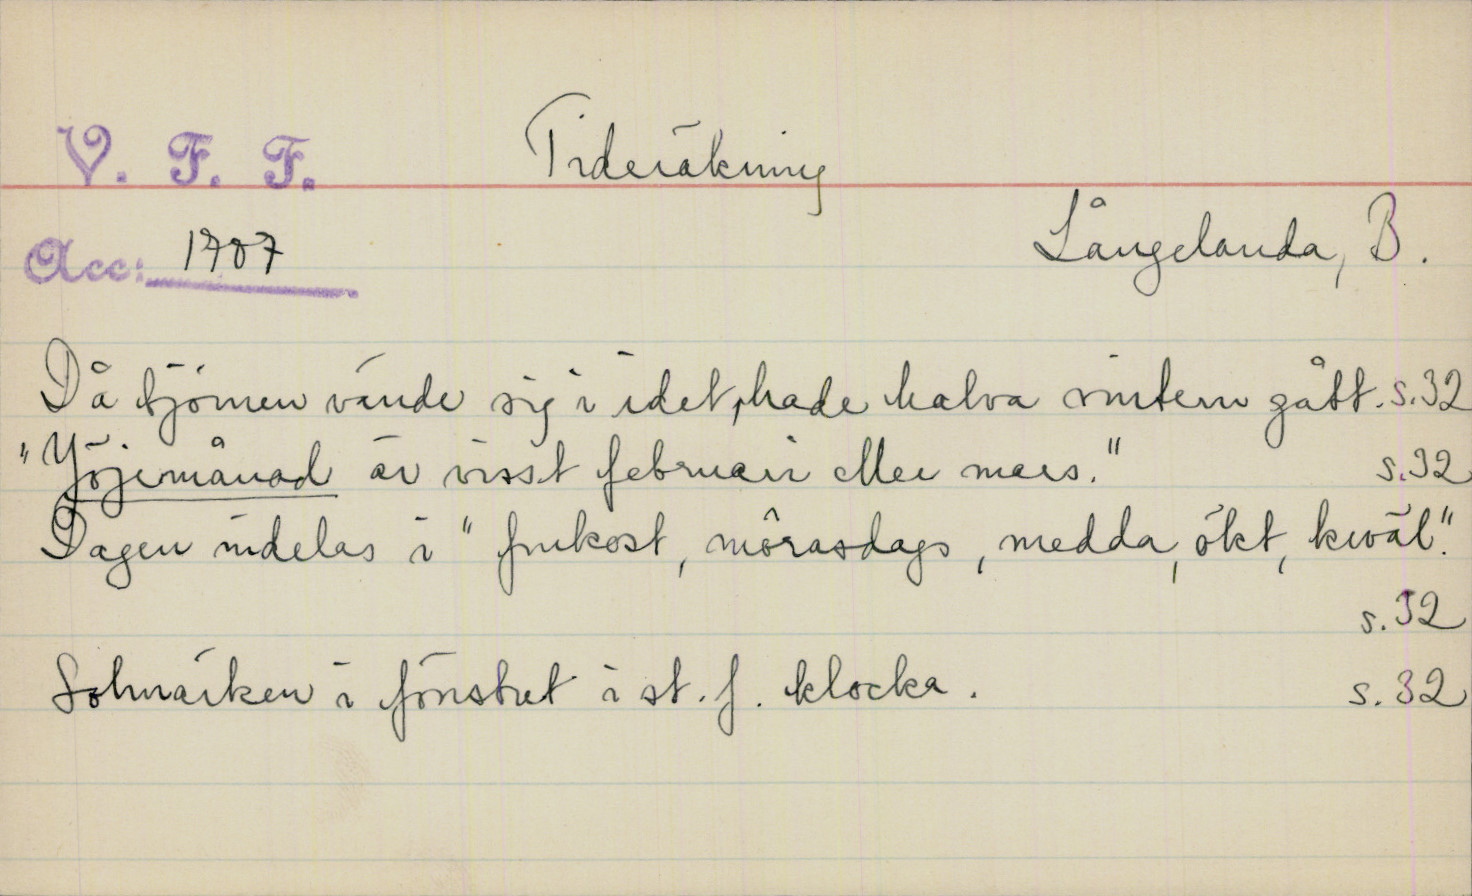 V. F. F.
Tideräkning
Acc: 1707
Långelanda, B.
Då björnen vände sig i idet, hade halva vintern gått. s. 32
"Yöjemånad är visst februari eller mars." s. 32
Dagen indelas i "frukost, môrasdags, medda, ökt, kwäl".
s. 32
Solmärken i fönstret i st. f. klocka. s. 32